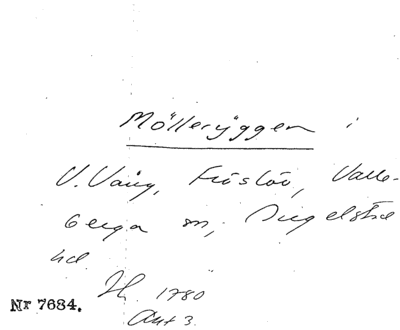 Mölleryggen i
V. Vång, Fröslöv, Valle-
berga sn, Ingelstad
hd.
Nr 7684.
1780
Akt 3.